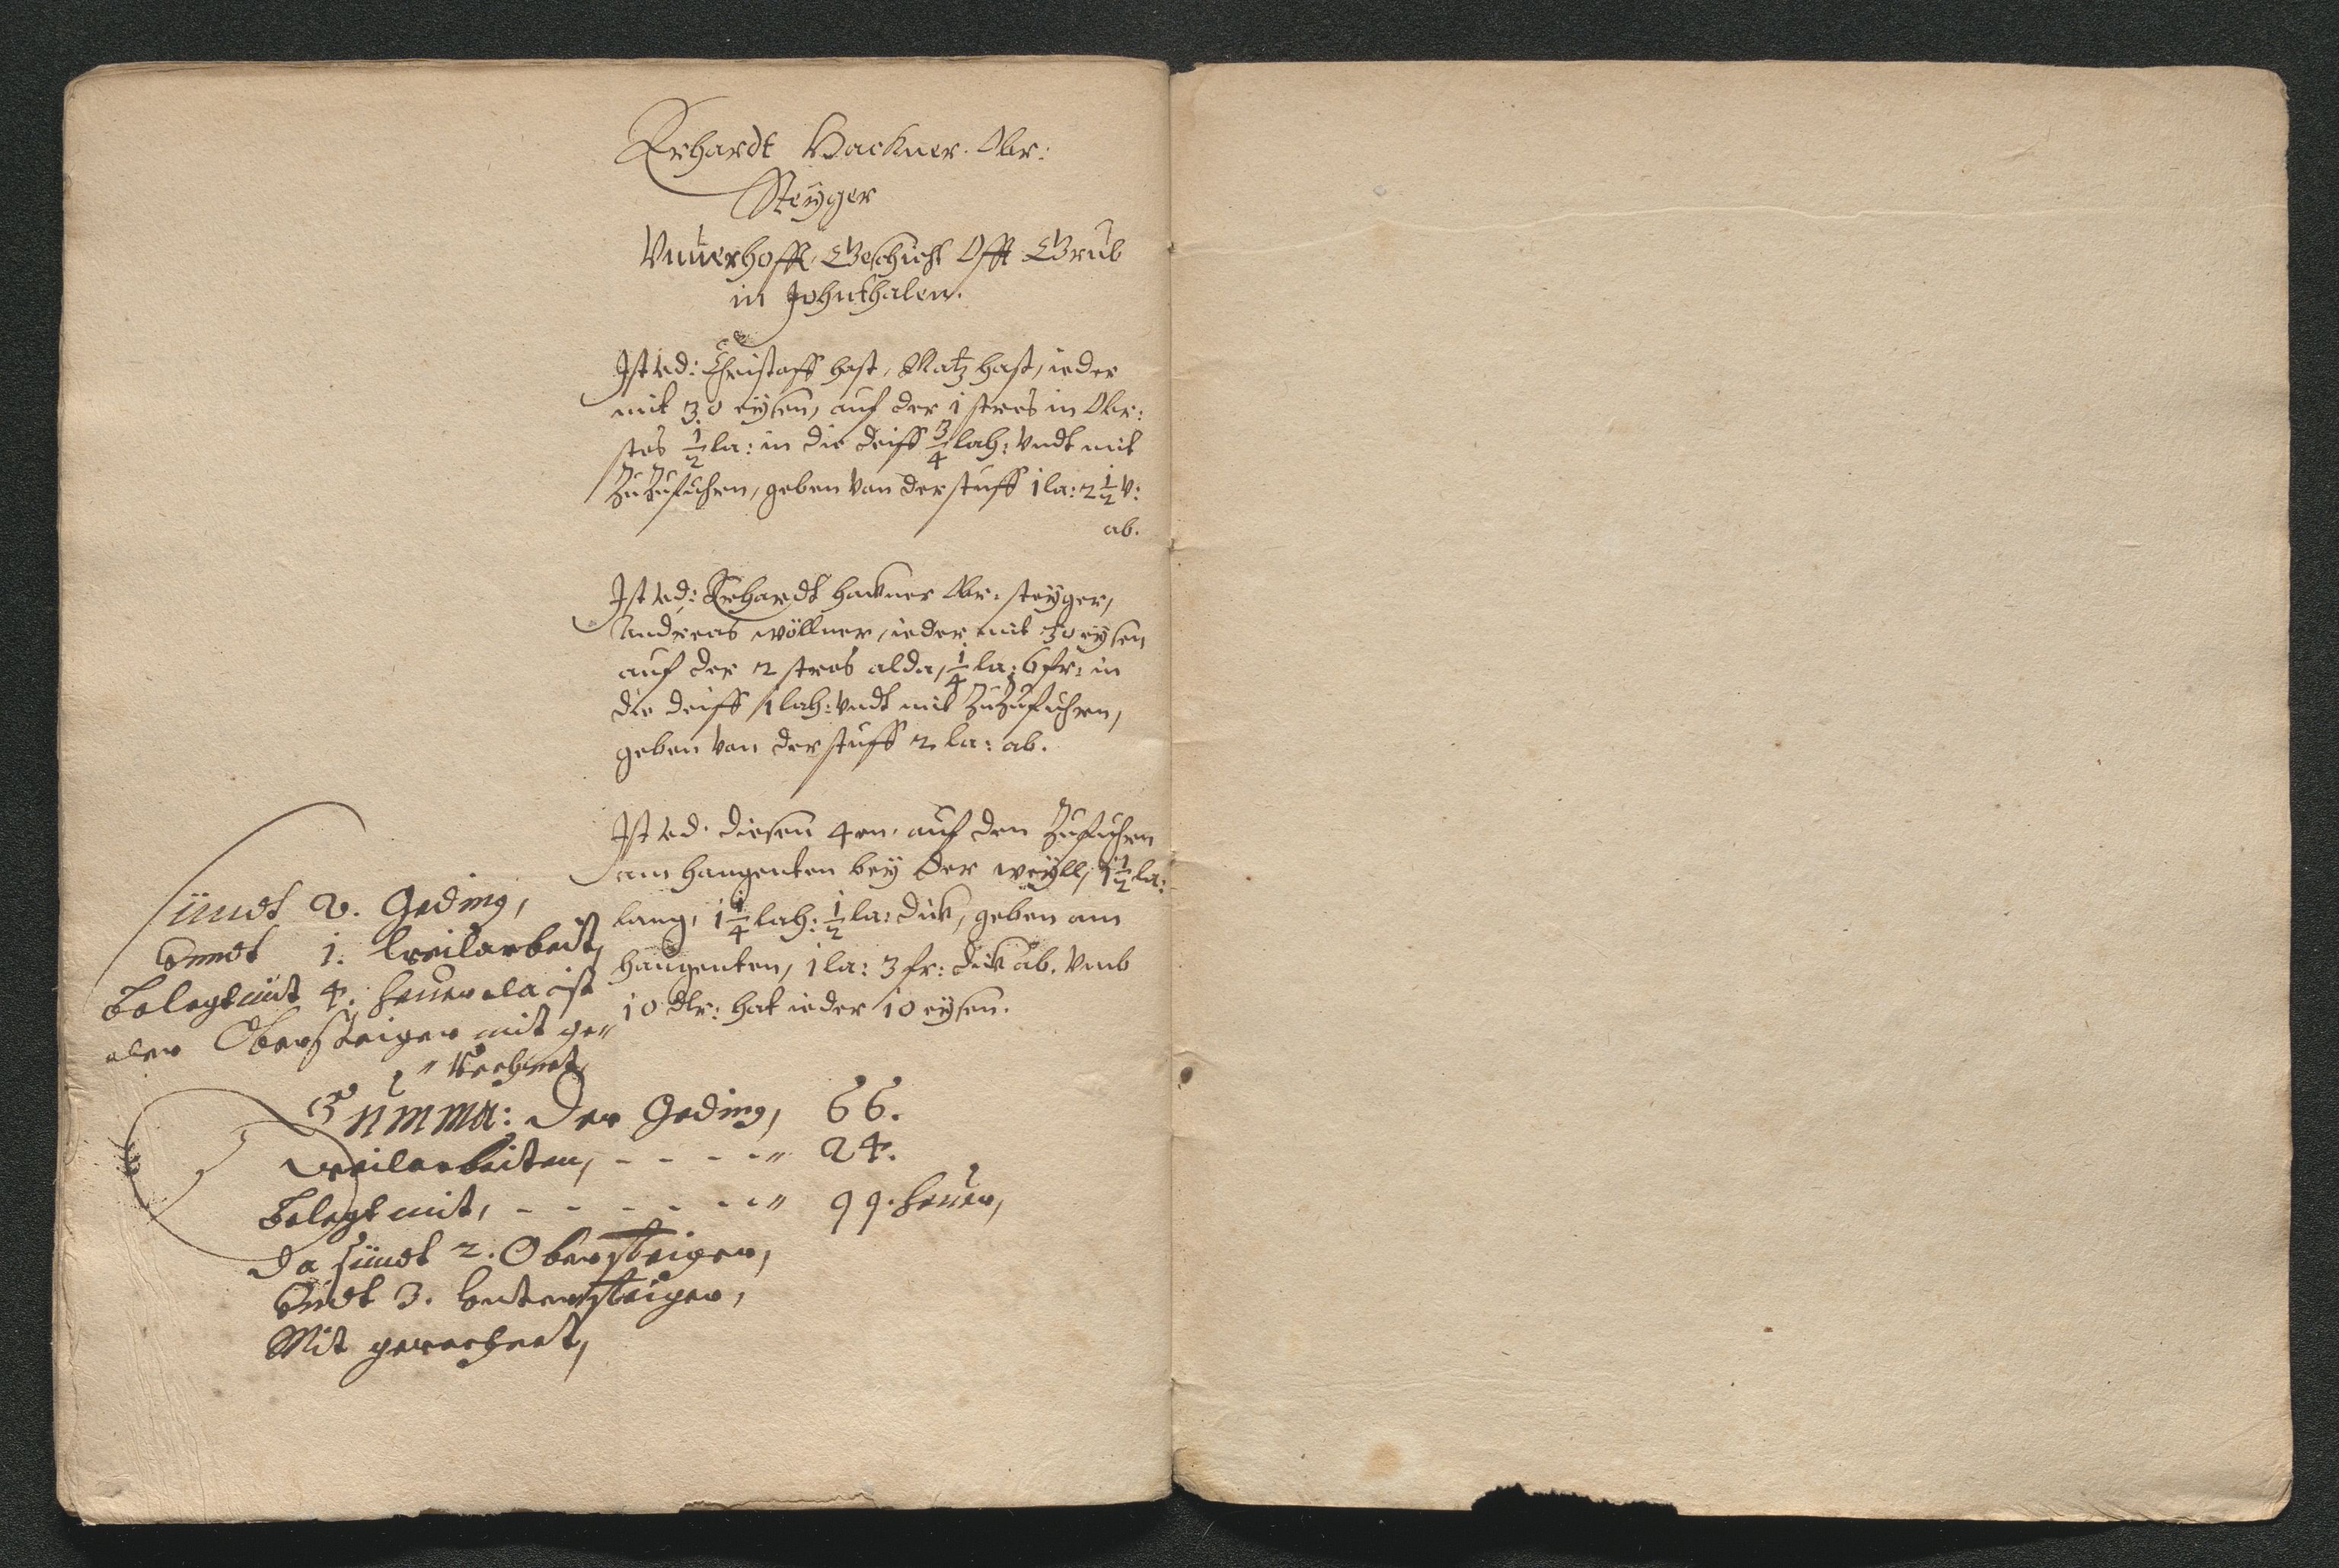 Erhardt Hackner. Obr:
Steÿger
Vnuerhofft Geschicht Offt Grub
in Johnthalen.
Ist vd: Christoff hast, Matz hast, ieder
mit 30 eÿsen, auf der 1 stros in Obr:
stes 1/2 la: in die deiff 3/4 lah: vndt mit
Zuzufuhren, geben von der stuff 1 la: 2 1/2 v:
ab.
Ist vd: Erhardt hackner Obr: steÿger,
Andreas wöllner, ieder mit 30 eÿsen
auf der 2 stros alda, 1/4 la: 6 fr: in
die deiff 1 lah: vndt mit Zuzufuhren,
geben von der stuff 2 la: ab.
Ist vd. diesen 4en. auf den Zufuhren
am hangenten beÿ der weÿll, 1 1/2 la:
lang, 1 1/4 lah: 1/2 la: dick, geben am
hangenten, 1 la: 3 fr: dick ab. vmb
10 dlr: hat ieder 10 eÿsen.
Sündt 2. Geding,
vnndt 1. weilarbeit,
belegt mit 4. heuer da ist
der Obersteiger mit ge„
„Rechnet,
Summa: der Geding, 66.
weilarbeiten, - - - -„ 24.
belegt mit, - - - - - -„ 99. heuer,
da sündt 2. Obersteiger,
Vndt 3. vntersteiger,
Mit gerechnet,